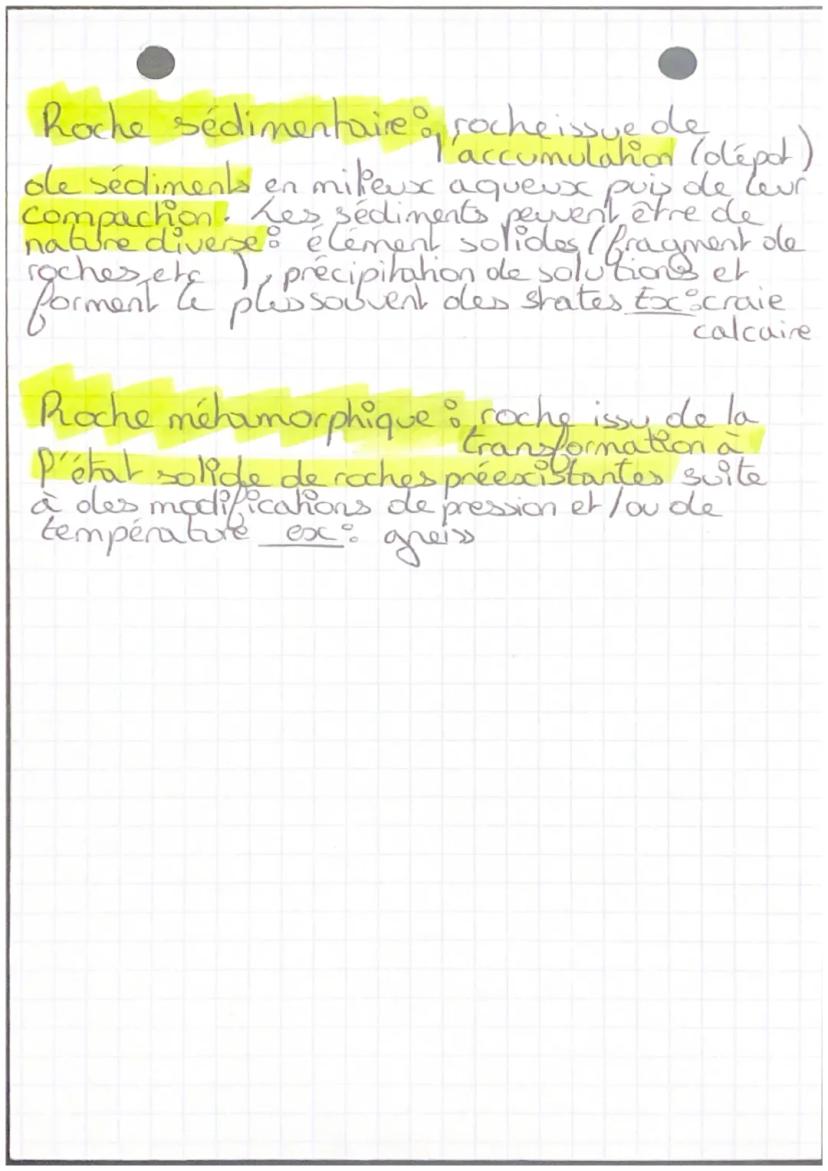 Roche sédimentaire : roche issue de
l'accumulation (dépot)
de sédiments en milieux aqueux puis de leur
compaction. Les sédiments peuvent être de
nature diverse : élément solides (fragment de
roches, etc ), précipitation de solutions et
forment le plus souvent des strates Ex : craie
calcaire
Roche métamorphique : roche issu de la
transformation à
l'état solide de roches préexistantes suite
à des modifications de pression et/ou de
température ex : gneiss